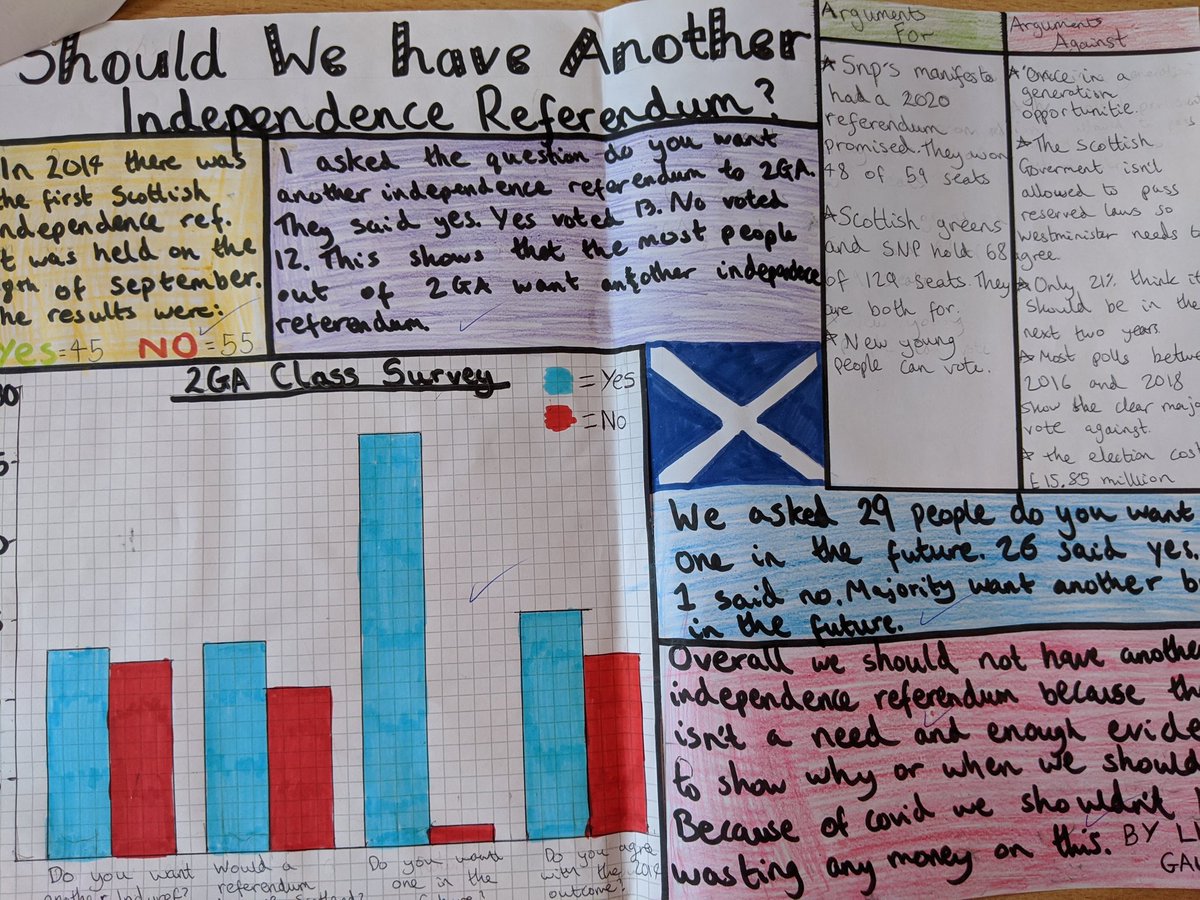 Should We have Another
Independence Referendum?
In 2014 there was
the first Scottish
independence ref.
it was held on the
of September.
the results were:
Yes=45 NO=55
I asked the question do you want
another independence referendum to 2GA.
They said yes. Yes voted 13. No voted
12. This shows that the most people
out of 2GA want another independence
referendum.
Arguments
For
* Snp's manifesto
had a 2020
referendum
promised. They won
48 of 59 seats
* Scottish greens
and SNP hold 68
of 129 seats. They
are both for.
* New young
people can vote.
Arguments
Against
* 'Once in a
generation
opportunitie.
* The scottish
Goverment isn't
allowed to pass
reserved laws so
westminister needs to
agree.
* Only 21% think it
should be in the
next two years.
* Most polls between
2016 and 2018
show the clear
vote against.
* the election cost
£15.85 million
2GA Class Survey
= Yes
= No
Do you want
another Indyref?
Would a
referendum
Do you want
one in the
Do you agree
with the 2014
outcome?
We asked 29 people do you want
one in the future. 26 said yes.
1 said no. Majority want another
in the future.
Overall we should not have another
independence referendum because
isn't a need and enough
to show why or when we should
Because of covid we shouldn't
wasting any money on this. BY